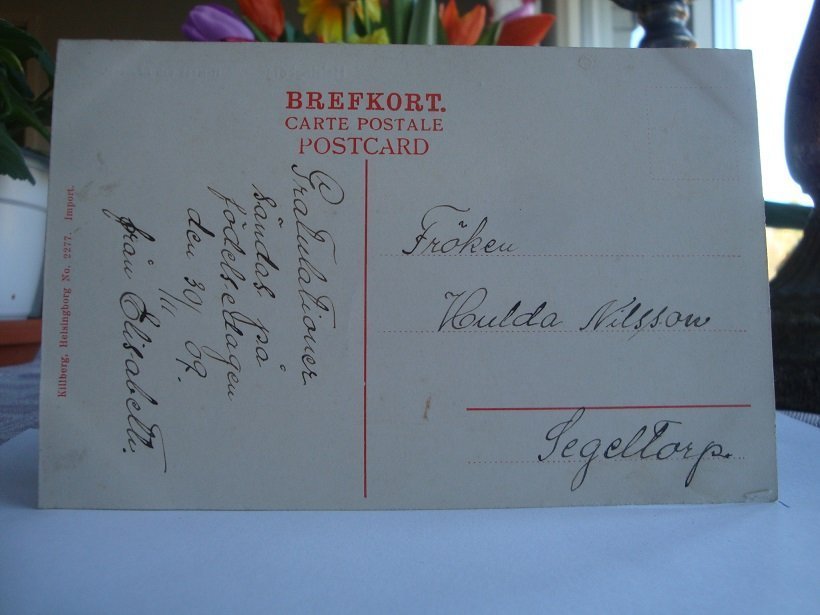 BREFKORT.
CARTE POSTALE
POSTCARD
Gratulationer
sändas på
födelsedagen
den 30/11 09.
från Elisabeth.
Fröken
Hulda Nilsson
Segeltorp.
Killberg, Helsingborg No. 2277. Import.